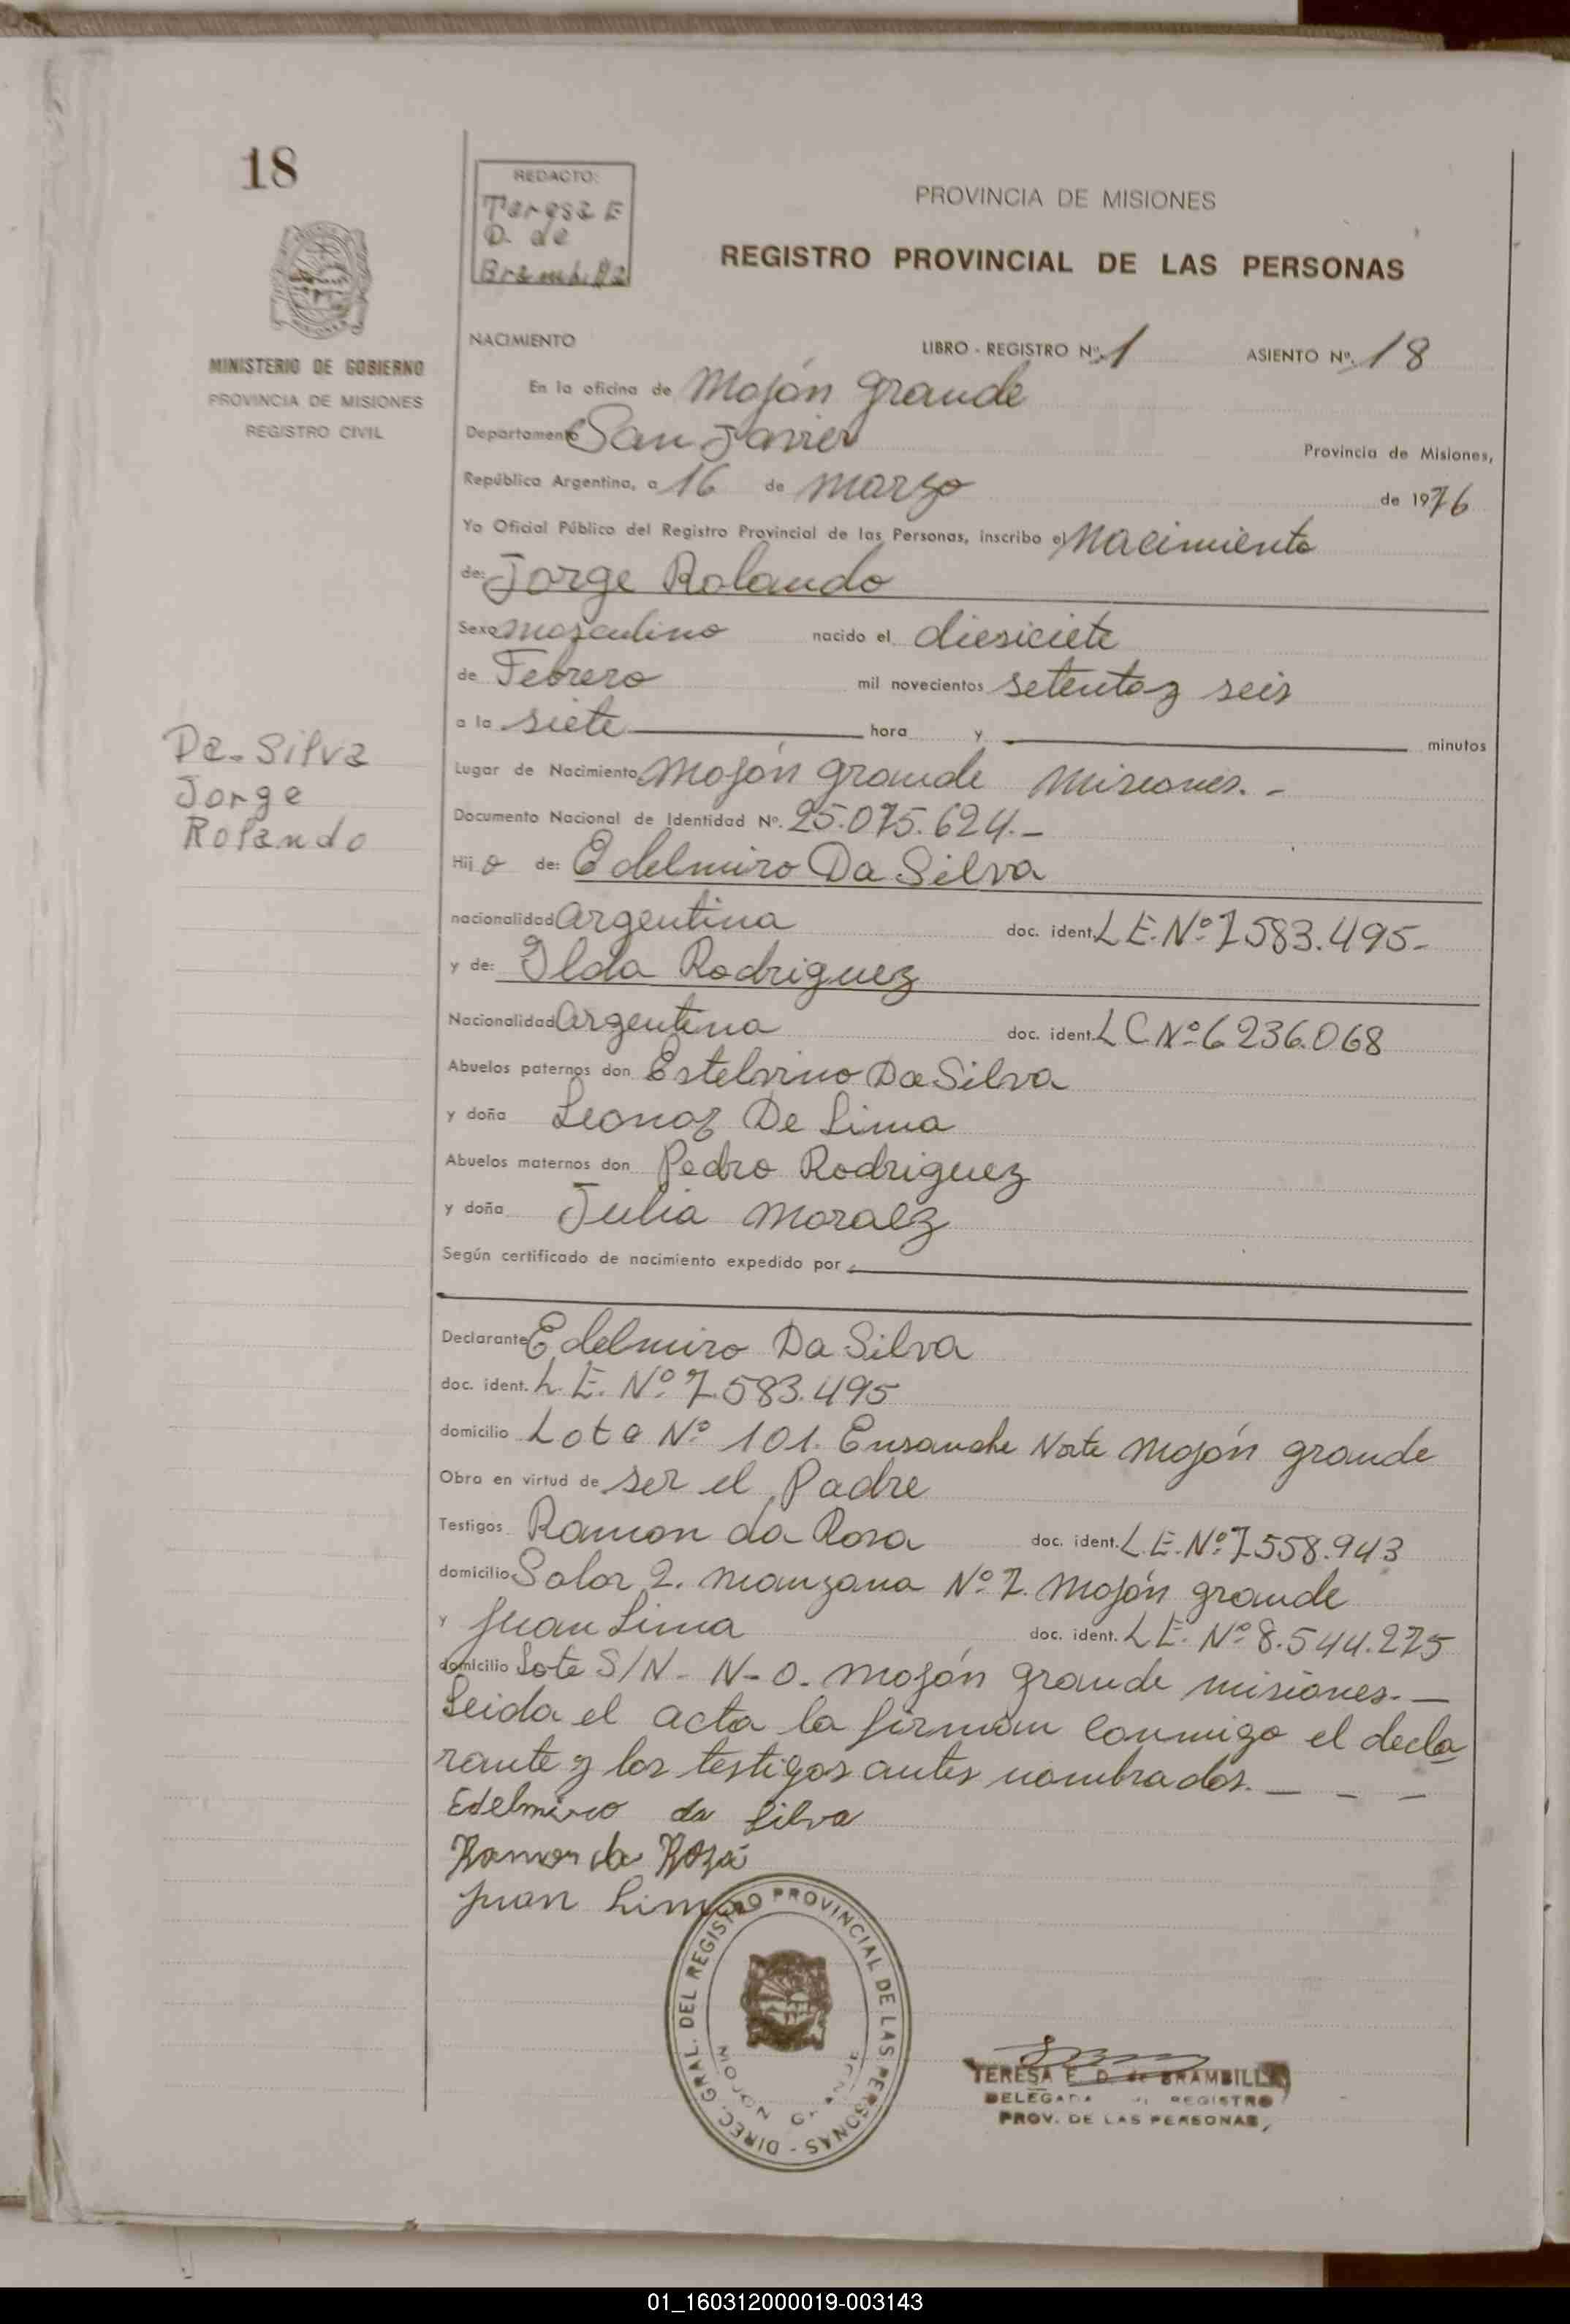 18
REDACTO:
Teresa E
D. de
Brambilla
PROVINCIA DE MISIONES
REGISTRO PROVINCIAL DE LAS PERSONAS
MINISTERIO DE GOBIERNO
PROVINCIA DE MISIONES
REGISTRO CIVIL
NACIMIENTO LIBRO - REGISTRO Nº. 1 ASIENTO Nº. 18
En la oficina de Mojón grande
Departamento San Javier Provincia de Misiones,
República Argentina, a 16 de marzo de 1976
Yo Oficial Público del Registro Provincial de las Personas, inscribo el Nacimiento
de: Jorge Rolando
Sexo masculino nacido el diesiciete
de Febrero mil novecientos setenta y seis
a la siete hora y minutos
Da. Silva
Jorge
Rolando
Lugar de Nacimiento Mojón grande Misiones. -
Documento Nacional de Identidad Nº. 25.075.624. -
Hij o de: Edelmiro Da Silva
nacionalidad argentina doc. ident. L E. Nº 7.583.495-
y de: Ilda Rodriguez
Nacionalidad argentina doc. ident. L C Nº 6.236.068
Abuelos paternos don Estelvino Da Silva
y doña Leonor De Lima
Abuelos maternos don Pedro Rodriguez
y doña Julia Moraez
Según certificado de nacimiento expedido por
Declarante Edelmiro Da Silva
doc. ident. L. E. Nº 7.583.495
domicilio Lote Nº 101. Ensanche Norte Mojón grande
Obra en virtud de ser el Padre
Testigos Ramon da Rosa doc. ident. L. E. Nº 7.558.943
domicilio Solar 2. manzana Nº 7. Mojón grande
y Juan Lima doc. ident. L E. Nº 8.544.275
domicilio Lote S/N - N-O. Mojón grande misiones. -
Leida el acta la firman conmigo el decla
rante y los testigos antes nombrados. - - - -
Edelmiro da Silva
Ramon da Rosa
Juan Lima
DIREC. GRAL. DEL REGISTRO PROVINCIAL DE LAS PERSONAS -
MOJON GRANDE
TERESA E. D. de BRAMBILLA
DELEGADA REGISTRO
PROV. DE LAS PERSONAS
01_160312000019-003143